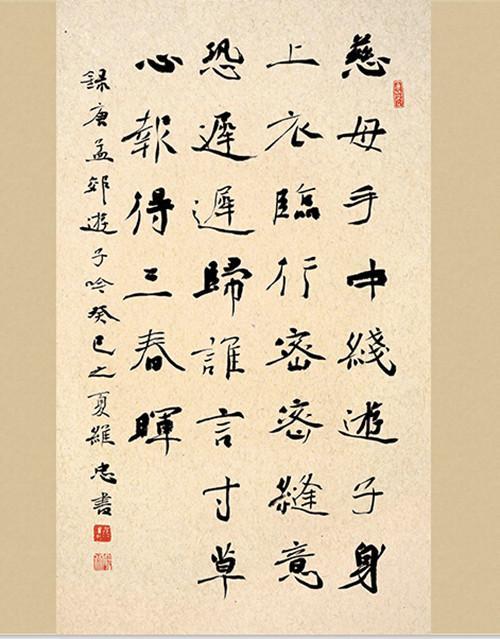 慈母手中綫遊子身
上衣臨行密密縫意
恐遲遲歸誰言寸草
心報得三春暉
録唐孟郊遊子吟癸巳之夏忠書